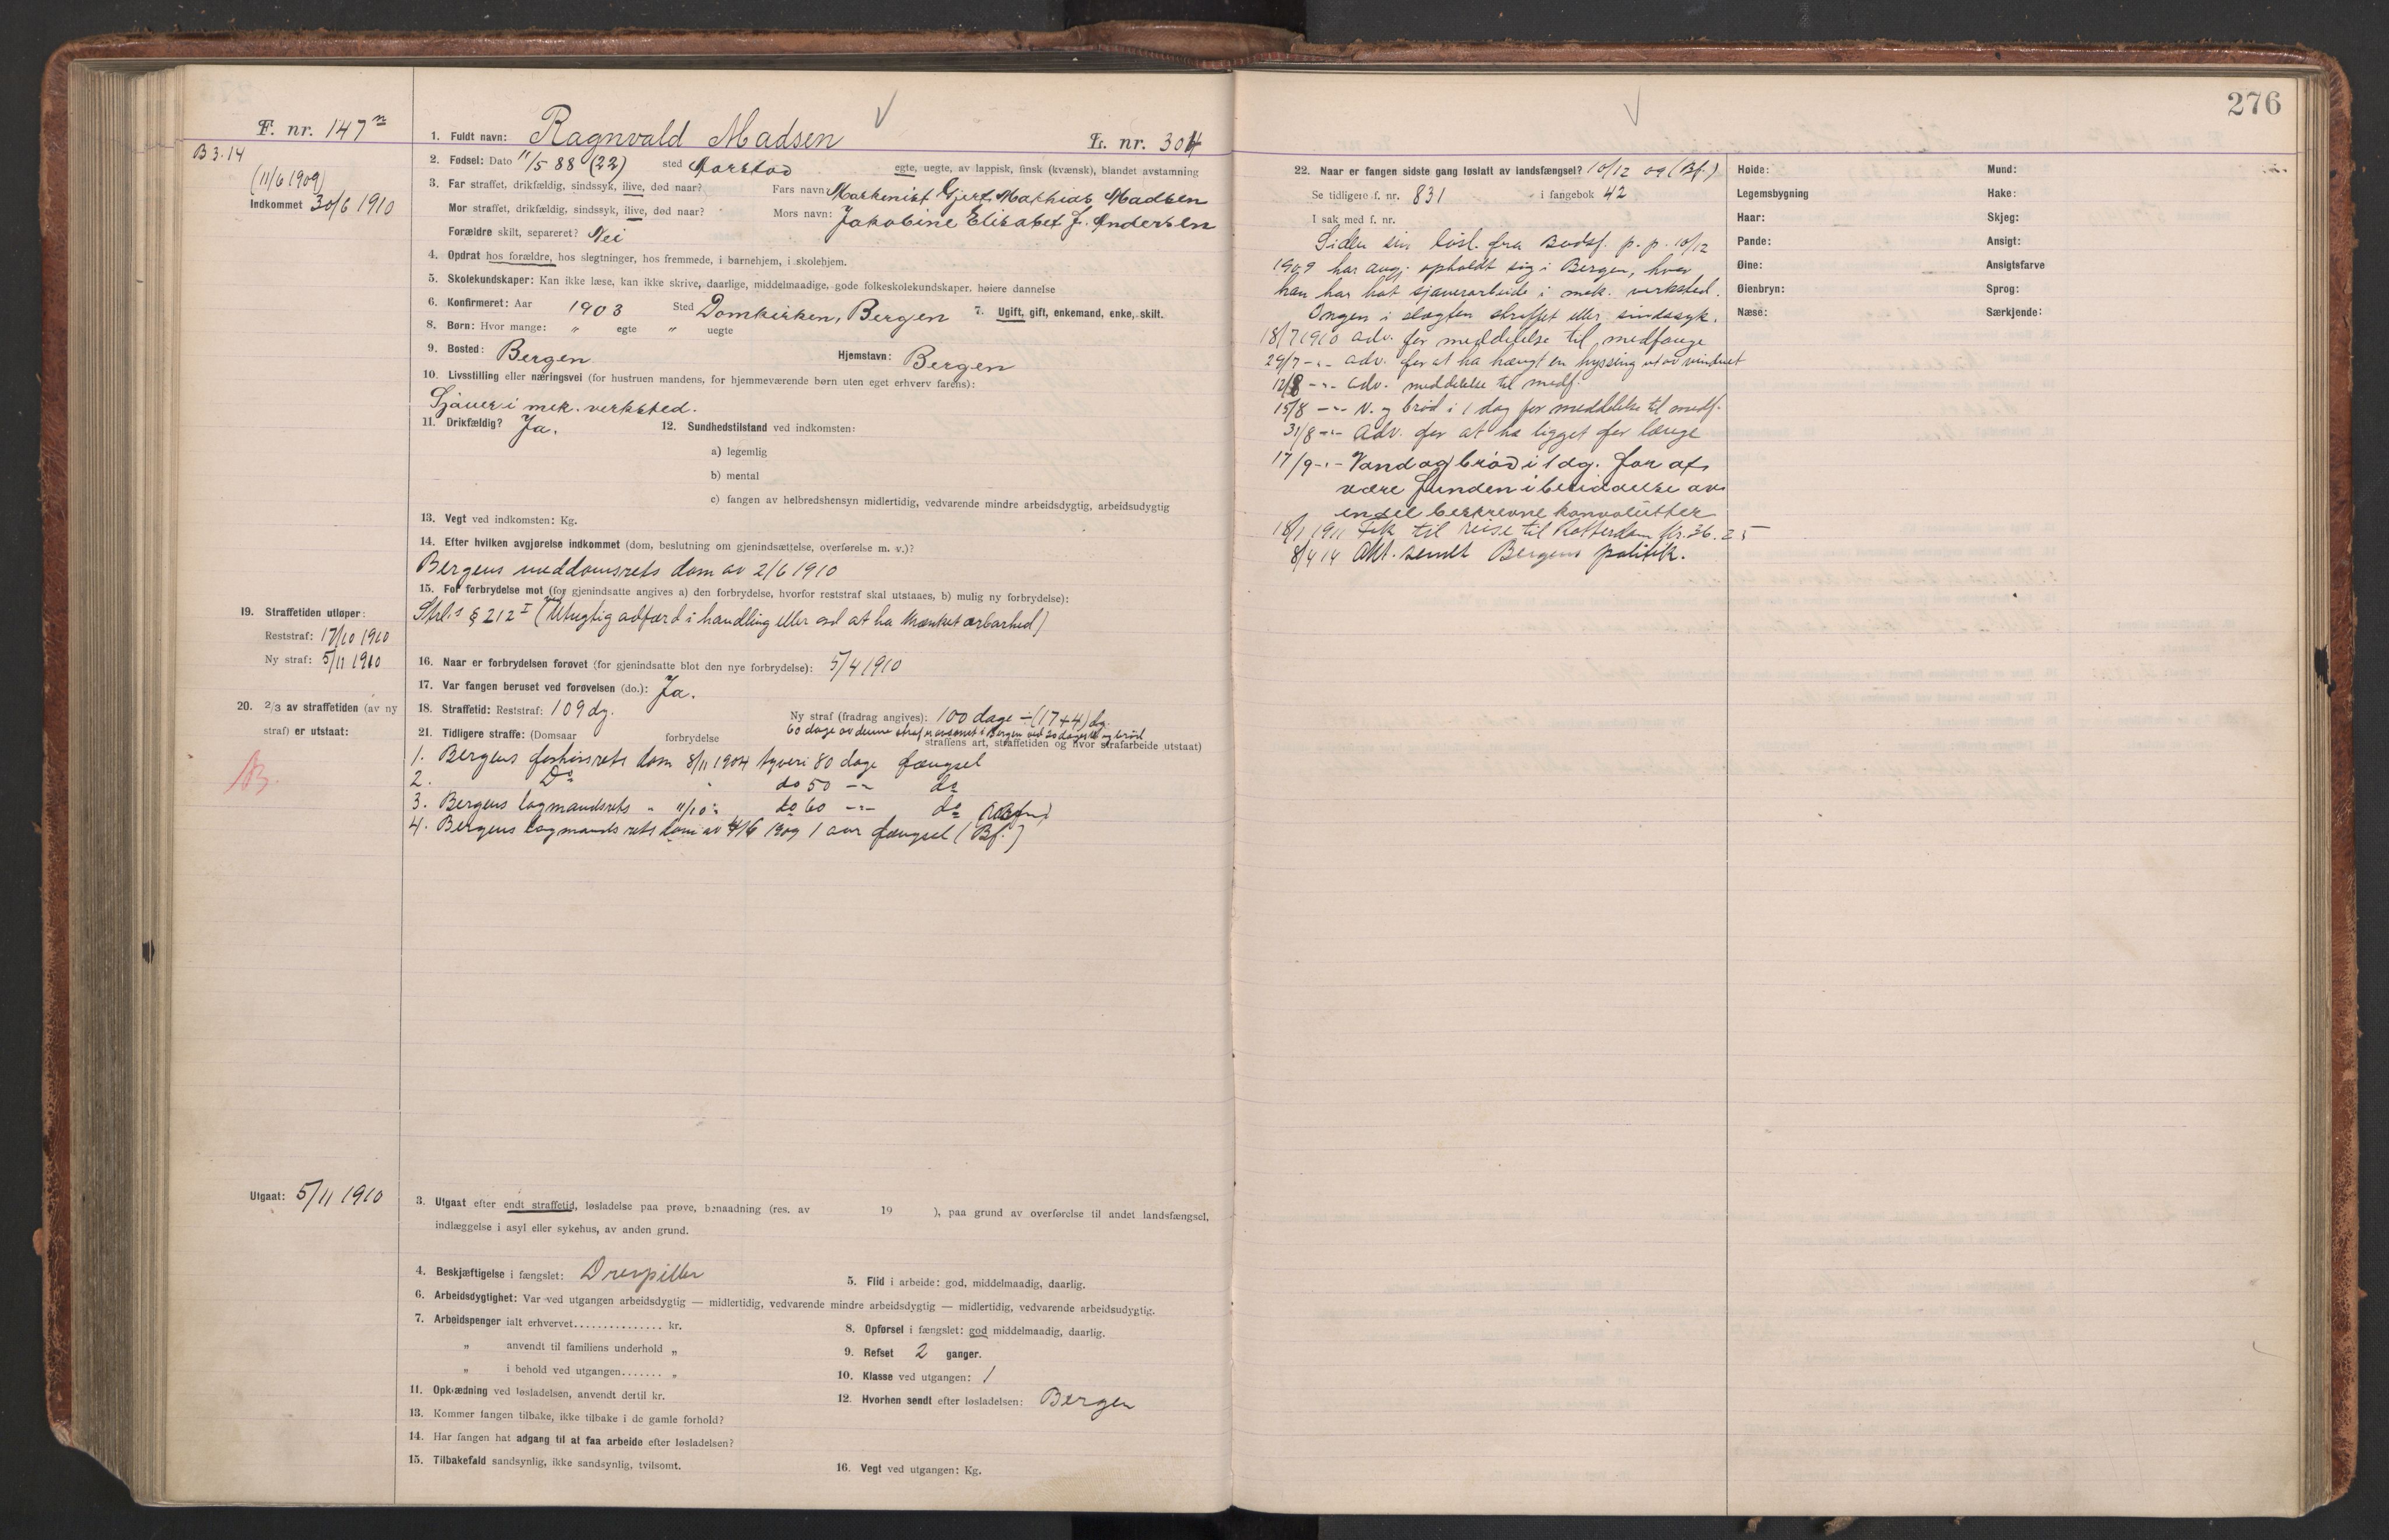 F. nr. 147
B 3.14
(11/6 1909)
Indkommet 30/6 1910
1. Fuldt navn: Ragnvald Madsen L. nr. 304
2. Fødsel: Dato 11/5 88 (22) sted Aarstad egte, uegte, av lappisk, finsk (kvænsk), blandet avstamning
3. Far straffet, drikfældig, sindssyk, ilive, død naar? Fars navn: Maskenist Gjert Mathias Madsen
Mor straffet, drikfældig, sindssyk, ilive, død naar? Mors navn: Jakobine Elisabet J. Andersen
Forældre skilt, separeret? Nei
4. Opdrat hos forældre, hos slegtninger, hos fremmede, i barnehjem, i skolehjem.
5. Skolekundskaper: Kan ikke læse, kan ikke skrive, daarlige, middelmaadige, gode folkeskolekundskaper, høiere dannelse
6. Konfirmeret: Aar 1903 Sted Domkirken, Bergen 7. Ugift, gift, enkemand, enke, skilt.
8. Børn: Hvor mange: " egte " uegte
9. Bosted: Bergen Hjemstavn: Bergen
10. Livsstilling eller næringsvei (for hustruen mandens, for hjemmeværende børn uten eget erhverv farens):
Sjauer i mek. verksted.
11. Drikfældig? Ja. 12. Sundhedstilstand ved indkomsten:
a) legemlig
b) mental
c) fangen av helbredshensyn midlertidig, vedvarende mindre arbeidsdygtig, arbeidsudygtig
13. Vegt ved indkomsten: Kg.
14. Efter hvilken avgjørelse indkommet (dom, beslutning om gjenindsættelse, overførelse m. v.)?
Bergens meddomsrets dom av 2/6 1910
15. For forbrydelse mot (for gjenindsatte angives a) den forbrydelse, hvorfor reststraf skal utstaaes, b) mulig ny forbrydelse):
Strl.s § 212 I (ved utugtig adfærd i handling eller ord at ha krænket ærbarhed)
19. Straffetiden utløper:
Reststraf: 17/10 1910
Ny straf: 5/11 1910
16. Naar er forbrydelsen forøvet (for gjenindsatte blot den nye forbrydelse): 5/4 1910
17. Var fangen beruset ved forøvelsen (do.): Ja.
20. 2/3 av straffetiden (av ny straf) er utstaat:
18. Straffetid: Reststraf: 109 dg. Ny straf (fradrag angives): 100 dage ÷ (17+4) dg.
60 dage av denne straf er avsonet i Bergen ved 20 dages v. og brød
21. Tidligere straffe: (Domsaar forbrydelse straffens art, straffetiden og hvor strafarbeide utstaat)
1. Bergens forhørsrets dom 8/11 1904 tyveri 80 dage fængsel
2. Do " do 50 -"- do
3. Bergens lagmandsrets " 11/10 do 60 -"- do
4. Bergens lagmandsrets dom av 4/6 1909 1 aar fængsel (Bf.)
Utgaat: 5/11 1910
3. Utgaat efter endt straffetid, løsladelse paa prøve, benaadning (res. av 19 ), paa grund av overførelse til andet landsfængsel,
indlæggelse i asyl eller sykehus, av anden grund.
4. Beskjæftigelse i fængslet: Drevpiller 5. Flid i arbeide: god, middelmaadig, daarlig.
6. Arbeidsdygtighet: Var ved utgangen arbeidsdygtig — midlertidig, vedvarende mindre arbeidsdygtig — midlertidig, vedvarende arbeidsudygtig.
7. Arbeidspenger ialt erhvervet............... kr. 8. Opførsel i fængslet: god middelmaadig, daarlig.
" anvendt til familiens underhold " 9. Refset 2 ganger.
" i behold ved utgangen....... " 10. Klasse ved utgangen: 1
11. Opklædning ved løsladelsen, anvendt dertil kr. 12. Hvorhen sendt efter løsladelsen: Bergen
13. Kommer fangen tilbake, ikke tilbake i de gamle forhold?
14. Har fangen hat adgang til at faa arbeide efter løsladelsen?
15. Tilbakefald sandsynlig, ikke sandsynlig, tvilsomt. 16. Vegt ved utgangen: Kg.
276
22. Naar er fangen sidste gang løslatt av landsfængsel? 10/12 09 (Bf.)
Se tidligere f. nr. 831 i fangebok 42
I sak med f. nr.
Siden sin løsl. fra Bodsf. p. p. 10/12
1909 har angj. opholdt sig i Bergen, hvor
han har hat sjauerarbeide i mek. verksted.
Ingen i slegten straffet eller sindssyk.
18/7 1910 adv. for meddelelse til medfange
29/7 -"- adv. for at ha hængt en hyssing ut av vinduet
12/8 -"- adv. meddelelse til medf.
15/8 -"- V. og brød i 1 dag for meddelelse til medf.
31/8 -"- adv. for at ha ligget for længe
17/9 -"- Vand og brød i 1 dg. for at
være funden i besiddelse av
endel beskrevne konvolutter
18/1 1911 Fik til reise til Rotterdam kr. 36.25
8/4 14 Akt. sendt Bergens politik.
Høide: Mund:
Legemsbygning Hake:
Haar: Skjeg:
Pande: Ansigt:
Øine: Ansigtsfarve
Øienbryn: Sprog:
Næse: Særkjende: